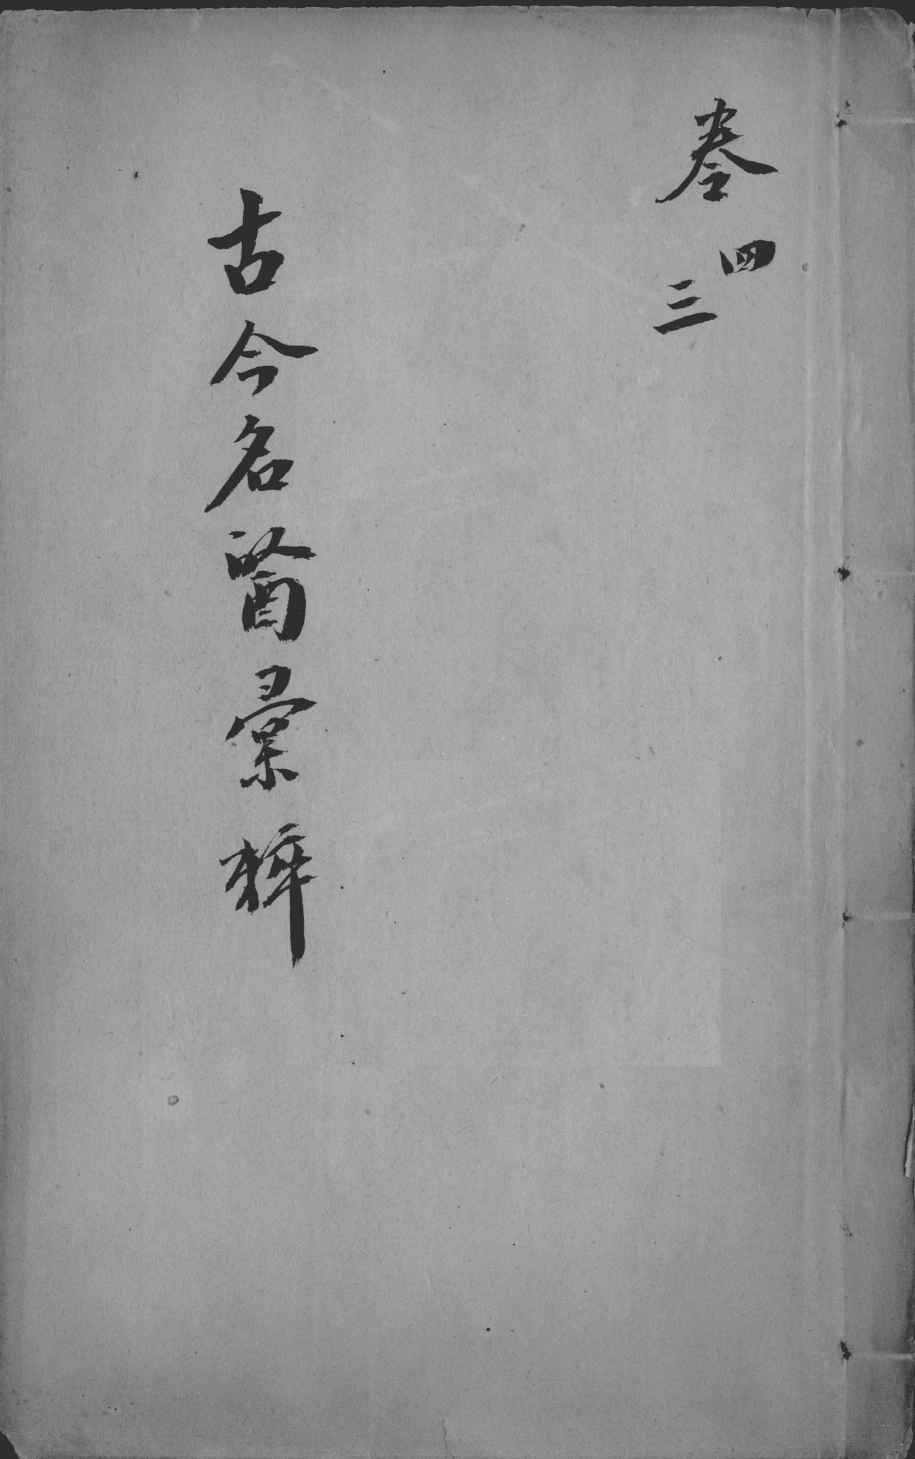 卷
四
三
古今名醫彙粹